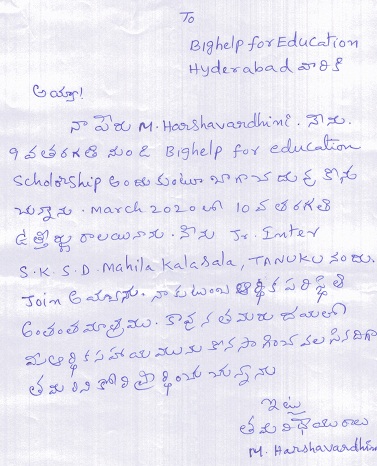 To
Bighelp for Education
Hyderabad వారికి
అయ్యా!
నా పేరు M. Harshavardhini. నేను.
9 వతరగతి నుండి Bighelp for education
Scholorship అందుకుంటూ బాగా చదువు కొను
చున్నాను. March 2020 లో 10 వ తరగతి
ఉత్తీర్ణు రాలయినాను. నేను Jr. Inter
S.K.S.D. Mahila Kalasala, TANUKU నందు.
Join అయినాను. నా కుటుంబ ఆర్థిక పరిస్థితి
అంతంత మాత్రము. కావున తమరు దయతో
మీ ఆర్థిక సహాయమును కొనసాగించ వలసినదిగా
తమరిని కోరి ప్రార్థించు చున్నాను
ఇట్లు
తమ విధేయురాలు
M. Harshavardhini